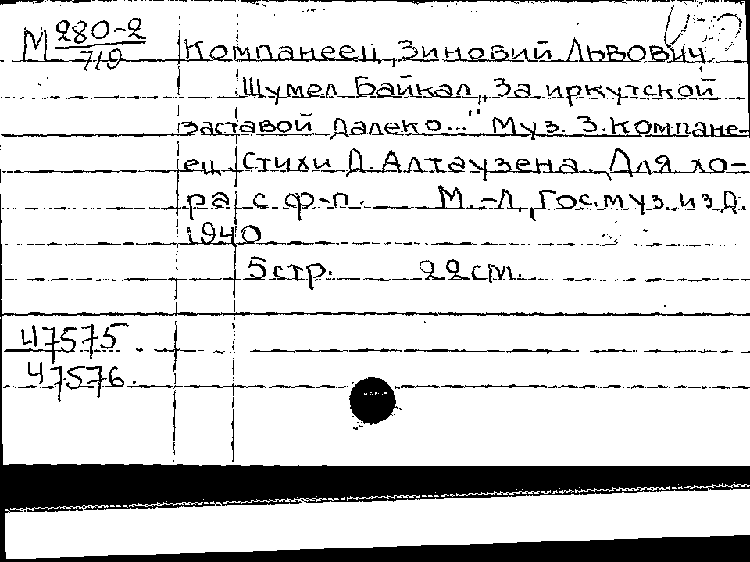 М 280-2
719
Компанеец, Зиновий Львович
Шумел Байкал „За иркутской
заставой далеко..." Муз. З. Компане-
ец. Стихи Д. Алтаузена. Для хо-
ра с ф-п. М.-Л, Гос. муз. изд.
1940
5 стр. 22 см.
47575.
47576.